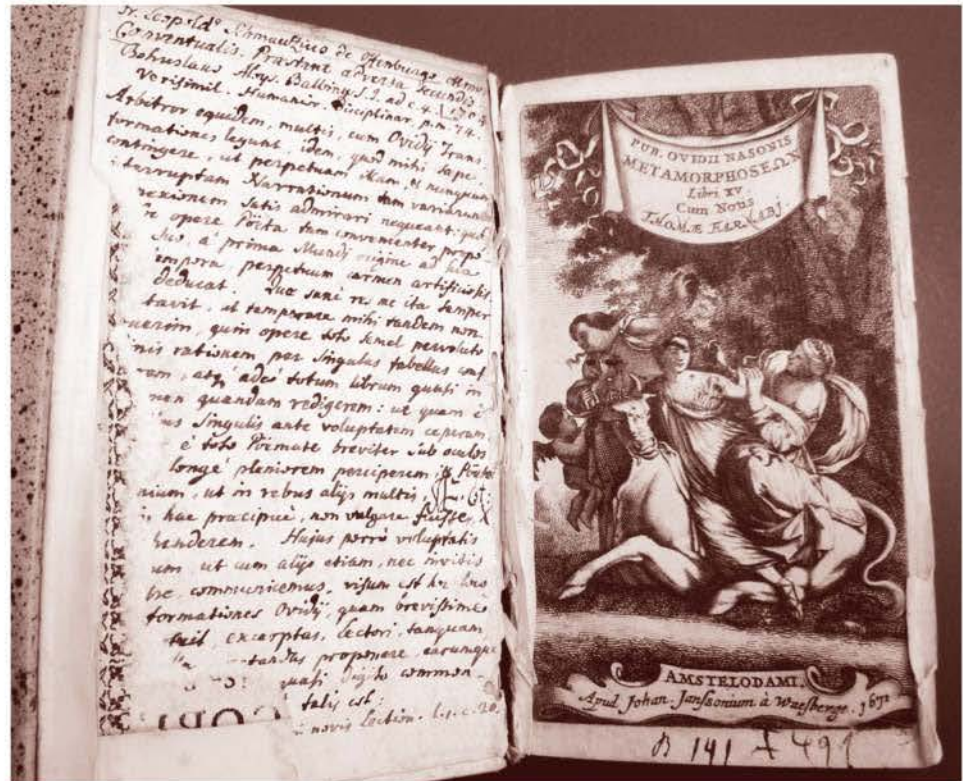 Fr. Leopold⁹ de Ottenburgo
Conventualis. Praestant adversa secundis
Bohuslaus Aloys. Balbinus S.J. ad c. 4.
Verisimil. Humanior. Disciplinar. p.m. 74.
Arbitror equidem, multis, cum Ovidij Trans
formationes legunt, idem, quod mihi saepe,
contingere, ut perpetuam illam, et nunquam
interruptam Narrationum tam variarum
nexionem satis admirari nequeant: qua
opere Poëta tam convenienter propo
sito, a prima Mundi origine ad sua
tempora, perpetuum carmen artificiosis
deducat. Quae sanè res me ita semper
tavit, ut temperare mihi tandem non
quin opere toto semel pervoluto
nis rationem per singulas tabellas
rem, atq; adeò totum librum quasi in
nem quandam redigerem: ut quam è
singulis ante voluptatem ceperam,
è toto Poëmate breviter sub oculos
longè pleniorem perciperem,
nium, ut in rebus alijs multis,
hac praecipuè, non vulgare fuisse, X
henderem. Hujus porrò voluptatis
ut cum alijs etiam, nec invitis
communicemus, visum est
formationes Ovidij, quam brevissimè
excerptas, Lectori, tanquam
proponere, earumque
quasi digito common-
talis est:
novis Lection. l. 1. c. 20.
PUB. OVIDII NASONIS
METAMORPHOSEΩN
Libri XV.
Cum Notis
THOMÆ FARNABJ.
AMSTELODAMI,
Apud Johan. Janssonium à Waesberge. 1671
B 141 + 491